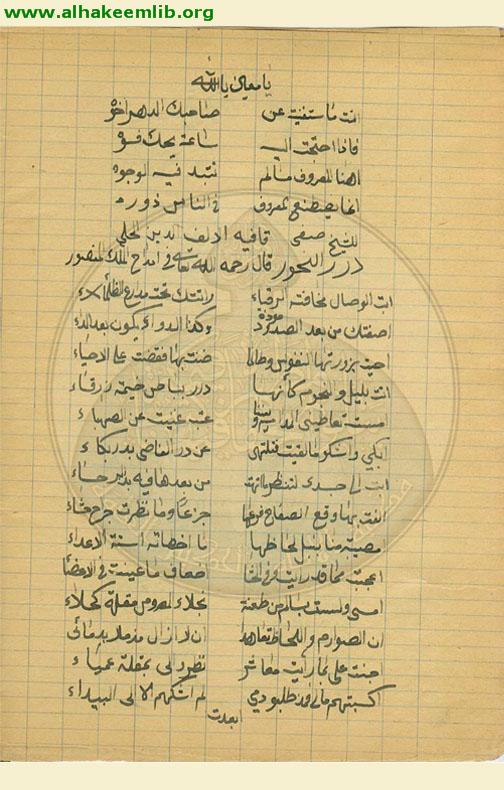 www.alhakeemlib.org
يا معين يا الله
انت ما ستغنيت عن صاحبك الدهر اخوه
فاذا احتجت اليه ساعة يجك فوه
اهنا المعروف مالم تبتذل فيه الوجوه
انما يصطنع المعروف في الناس ذووه
للشيخ صفي الدين الحلي قافيه الالف
درر النحور قال رحمه الله تعالى في امداح الملك المنصور
ابت الوصال مخافة الرقباء واتتك تحت مدارع الظلماء
اصفتك من بعد الصدود مودة وكذا الدواء يكون بعد الداء
احيت بزورتها النفوس وطالما ضنت بها فقضت على الاحياء
اتت بليل والنجوم كأنها درر بباطن خيمة زرقاء
امست تعاطيني المدام وبيننا عتب غنيت به عن الصهباء
ابكي واشكو ما لقيت فتلتهي عن در الفاظي بدر بكاء
ابت الى جسدي لتنظر ما انتهت من بعدها فيه يد برحاء
الفت بها وقع الصفاح فراعها جزعا وما نظرت جرح حشاء
امصيبة منا بنبل لحاظها ما اخطأته اسنة الاعداء
اعجبت مما قد رايت وفي الحشا اضعاف ما عاينت في الاعضا
امسي ولست بسالم من طعنة نجلاء او من مقلة كحلاء
ان الصوارم واللحاظ تعاهدا ان لا ازال مزملا بدمائي
اجنت علي بما رايت معاشر نظروا الي بمقلة عمياء
اكسبتهم مالي فمذ طلبوا دمي لم اشكهم الا الى البيداء
ابعدت